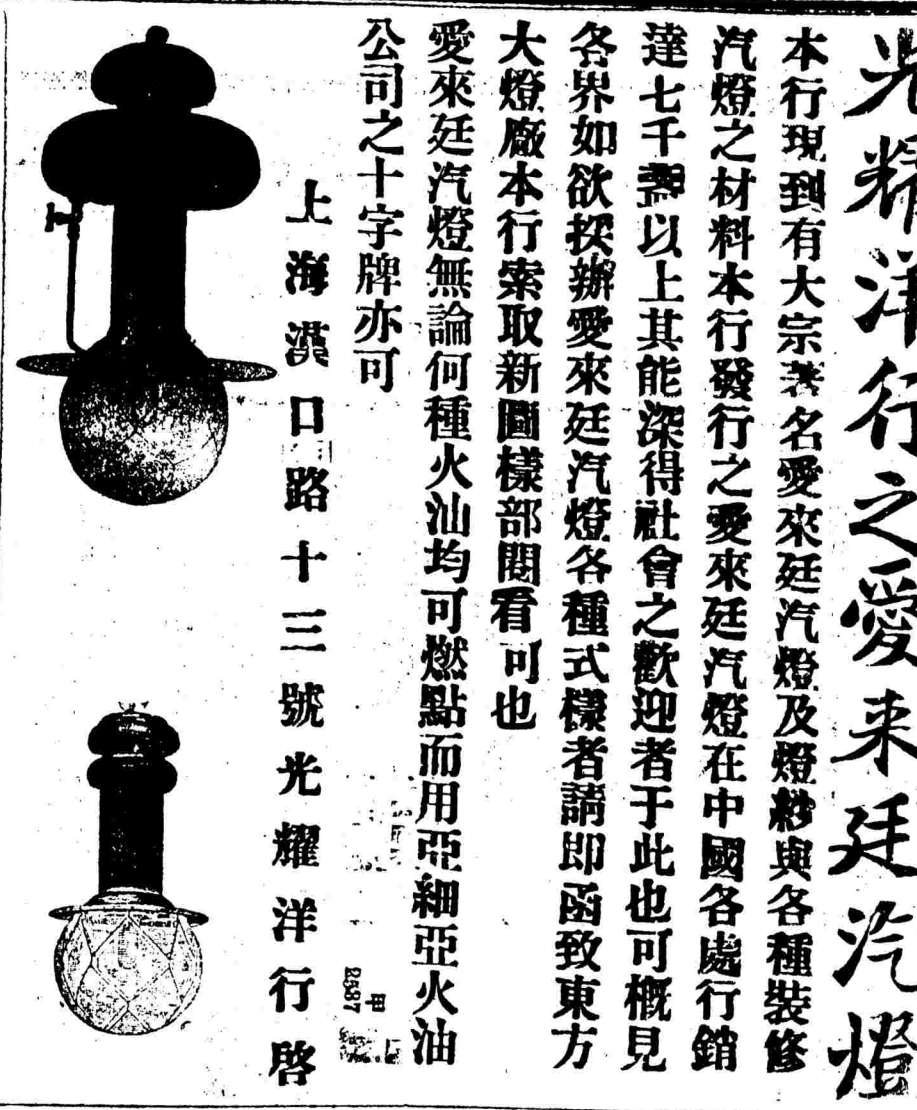 光耀洋行之愛来廷汽燈
本行現到有大宗著名愛來廷汽燈及燈紗與各種裝修
汽燈之材料本行發行之愛來廷汽燈在中國各處行銷
達七千盞以上其能深得社會之歡迎者于此也可概見
各界如欲採辦愛來廷汽燈各種式樣者請即函致東方
大燈廠本行索取新圖樣部閱看可也
愛來廷汽燈無論何種火油均可燃點而用亞細亞火油
公司之十字牌亦可
上海漢口路十三號光耀洋行啓
甲
2587